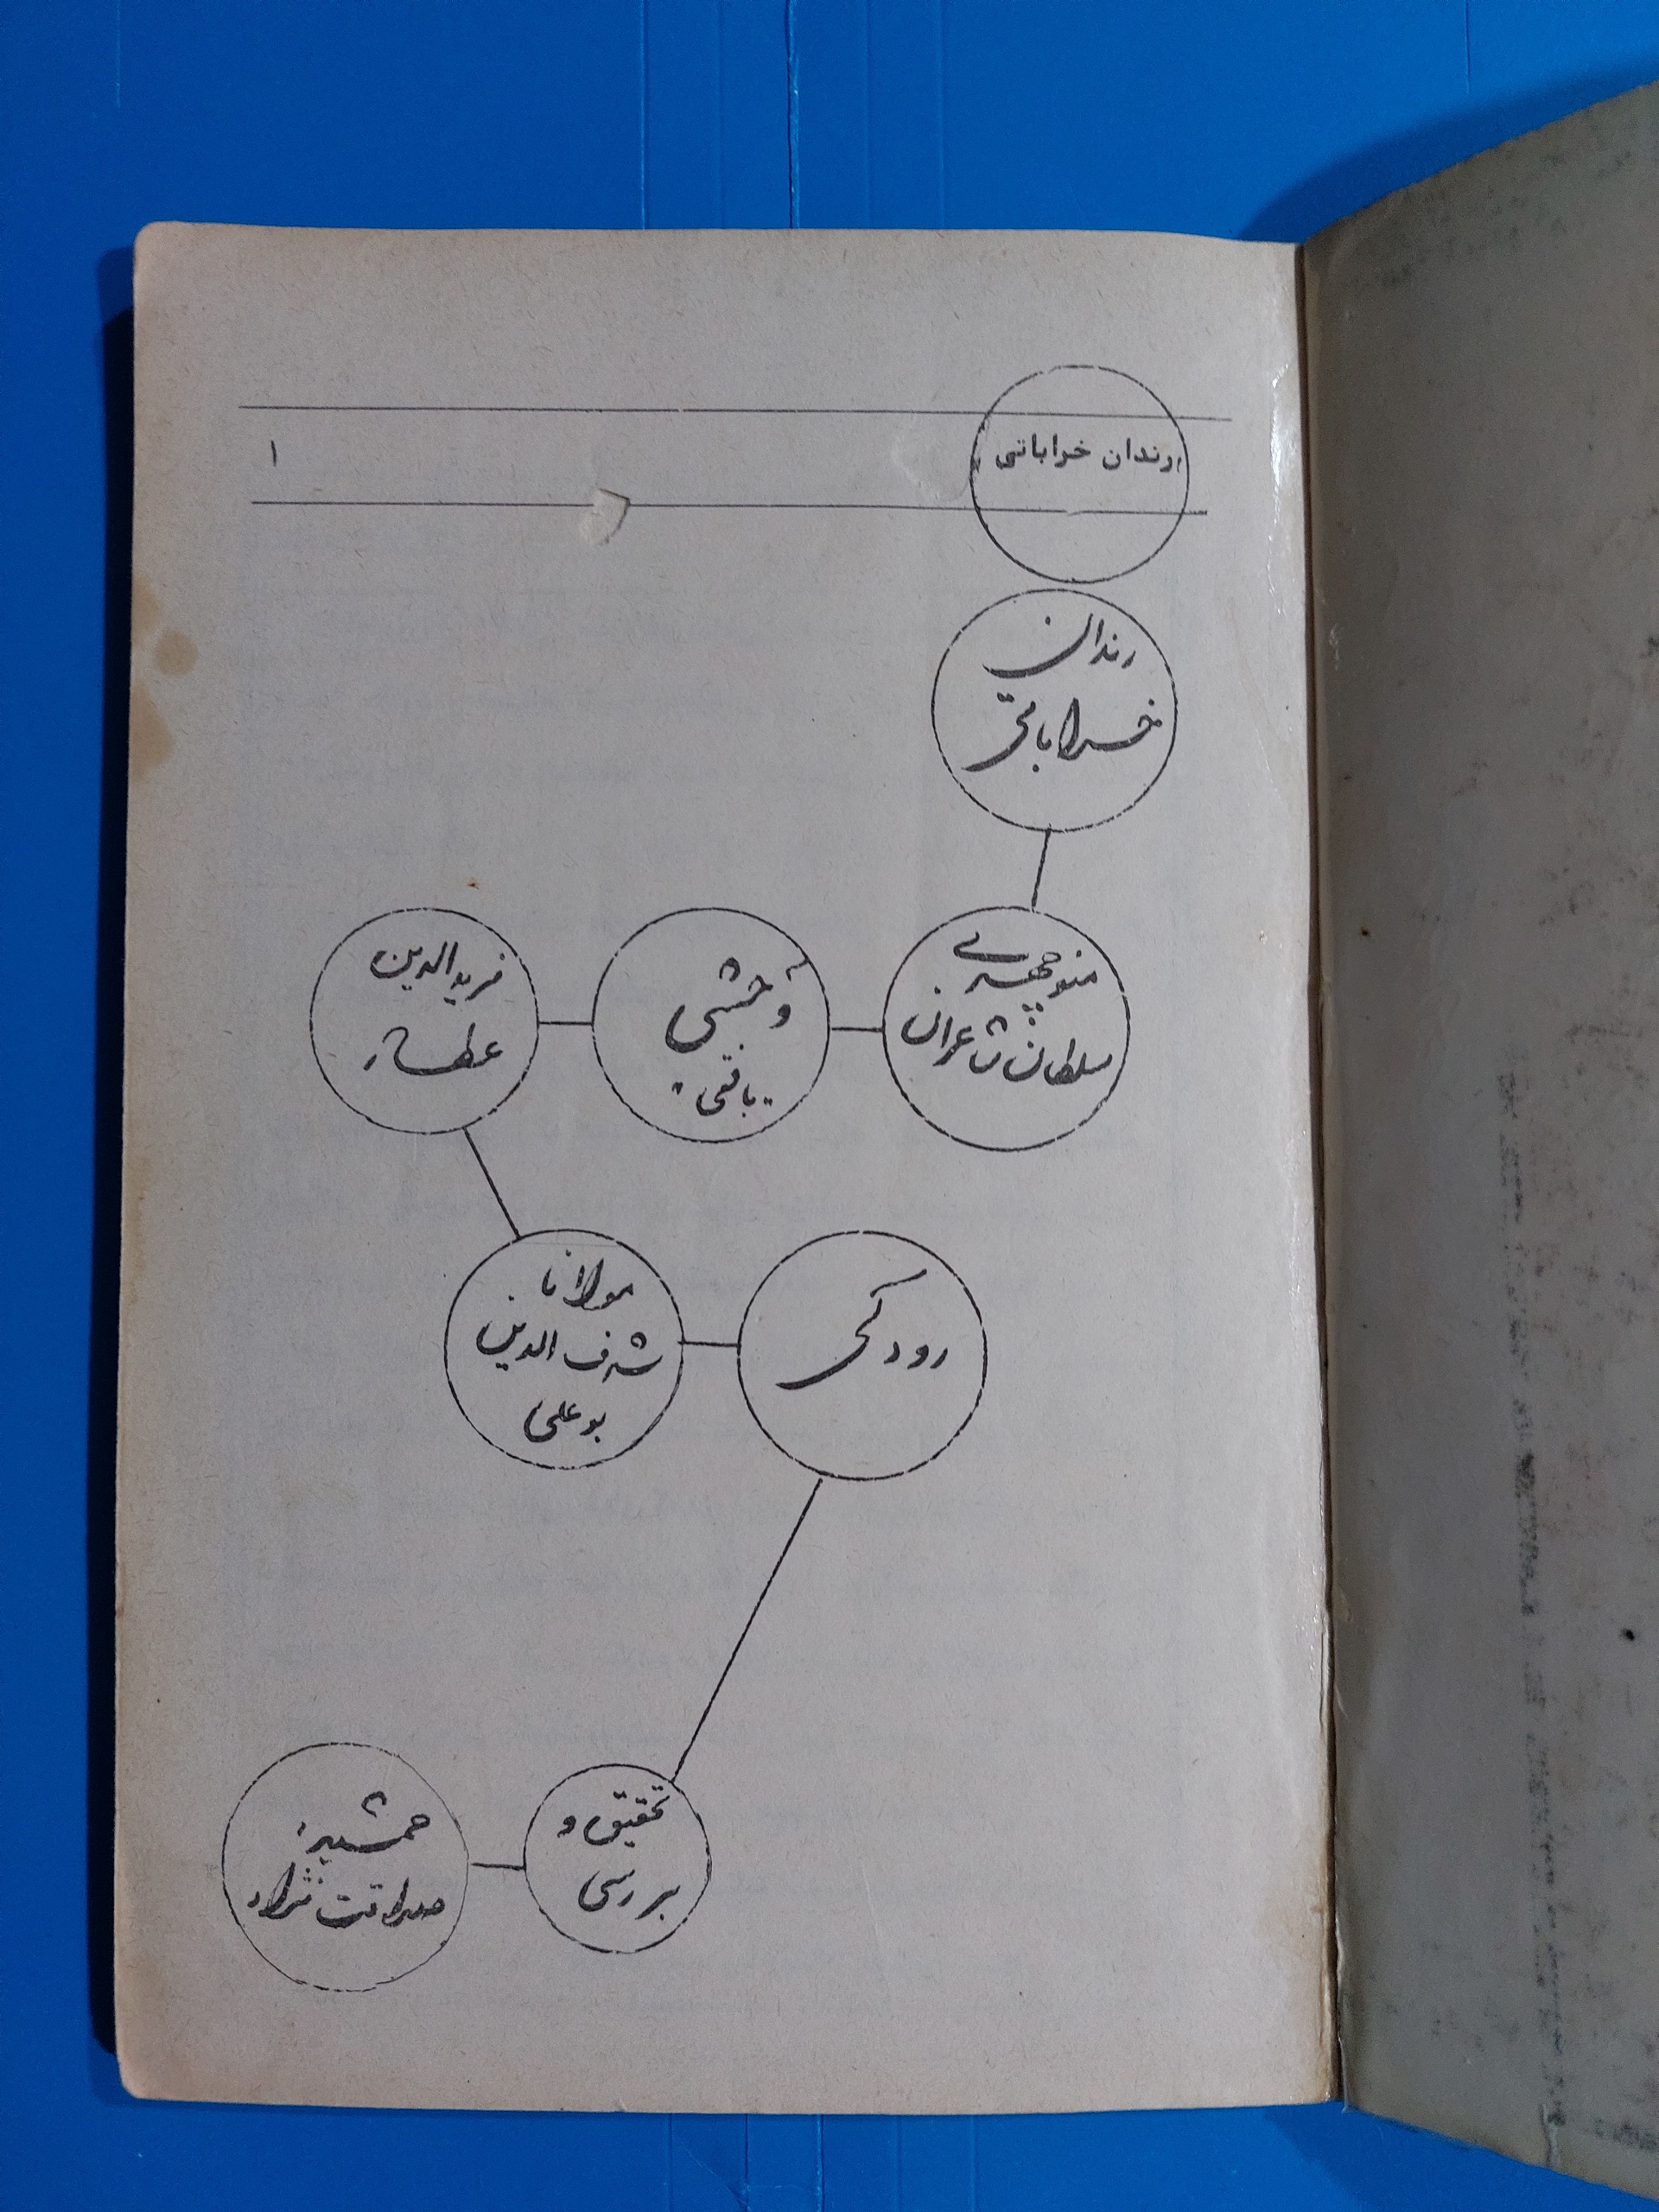 رندان خراباتی
۱
رندان
خراباتی
منوچهری
سلطان شاعران
وحشی
بافقی
فریدالدین
عطار
رودکی
مولانا
شرف الدین
بوعلی
تحقیق و
بررسی
جمشید
صداقت نژاد